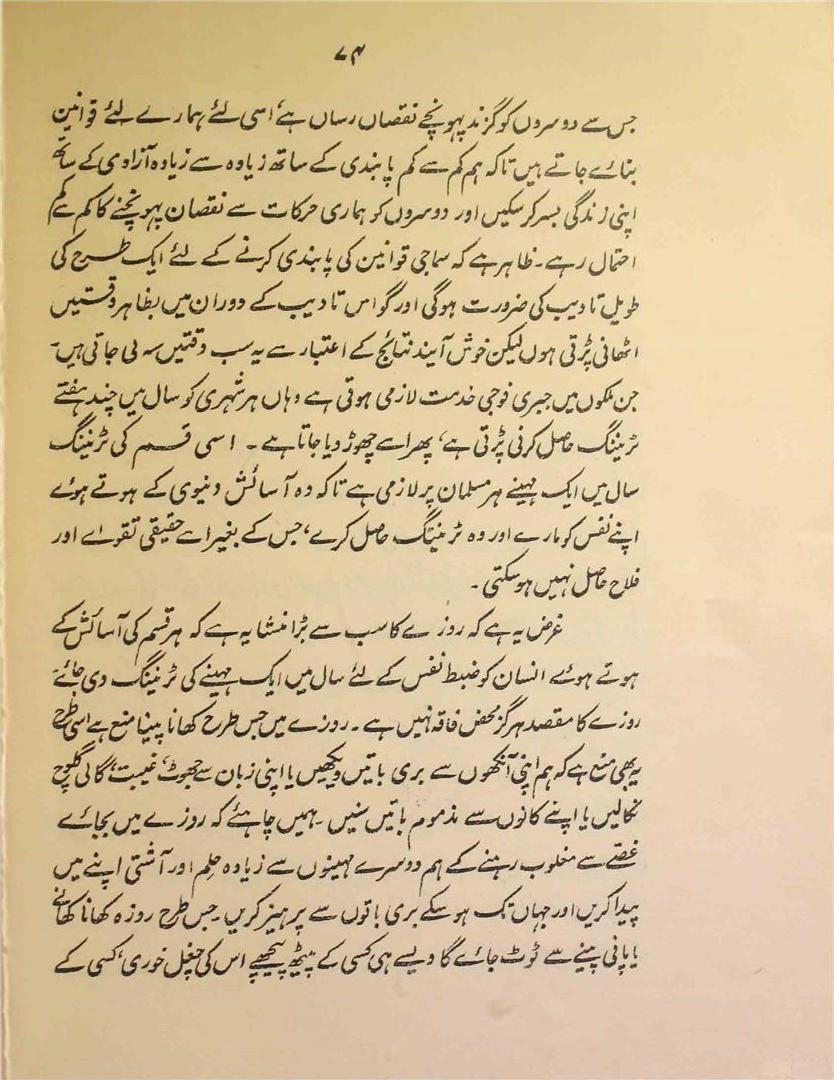 ۷۴
جس سے دوسروں کو گزند پہونچے نقصاں رساں ہے، اسی لئے ہمارے لئے قوانین
بنائے جاتے ہیں تاکہ ہم کم سے کم پابندی کے ساتھ زیادہ سے زیادہ آزادی کے ساتھ
اپنی زندگی بسر کر سکیں اور دوسروں کو ہماری حرکات سے نقصان پہونچنے کا کم سے کم
احتمال رہے۔ ظاہر ہے کہ سماجی قوانین کی پابندی کرنے کے لئے ایک طرح کی
طویل تادیب کی ضرورت ہوگی اور گو اس تادیب کے دوران میں بظاہر دقتیں
اٹھانی پڑتی ہوں لیکن خوش آیند نتائج کے اعتبار سے یہ سب دقتیں سہ لی جاتی ہیں۔
جن ملکوں میں جبری فوجی خدمت لازمی ہوتی ہے وہاں ہر شہری کو سال میں چند ہفتے
ٹریننگ حاصل کرنی پڑتی ہے، پھر اسے چھوڑ دیا جاتا ہے۔ اسی قسم کی ٹریننگ
سال میں ایک مہینے ہر مسلمان پر لازمی ہے تاکہ وہ آسائش دنیوی کے ہوتے ہوئے
اپنے نفس کو مارے اور وہ ٹریننگ حاصل کرے، جس کے بغیر اسے حقیقی تقوےٰ اور
فلاح حاصل نہیں ہو سکتی۔
غرض یہ ہے کہ روزے کا سب سے بڑا منشا یہ ہے کہ ہر قسم کی آسائش کے
ہوتے ہوئے انسان کو ضبط نفس کے لئے سال میں ایک مہینے کی ٹریننگ دی جائے۔
روزے کا مقصد ہرگز محض فاقہ نہیں ہے۔ روزے میں جس طرح کھانا پینا منع ہے اسی طرح
یہ بھی منع ہے کہ ہم اپنی آنکھوں سے بری باتیں دیکھیں یا اپنی زبان سے جھوٹ، غیبت، گالی گلوچ
نکالیں یا اپنے کانوں سے مذموم باتیں سنیں۔ ہمیں چاہئے کہ روزے میں بجائے
غصے سے مغلوب رہنے کے ہم دوسرے مہینوں سے زیادہ حلم اور آشتی اپنے میں
پیدا کریں اور جہاں تک ہو سکے بری باتوں سے پرہیز کریں۔ جس طرح روزہ کھانا کھانے
یا پانی پینے سے ٹوٹ جائے گا ویسے ہی کسی کے پیٹھ پیچھے اس کی چغل خوری، کسی کے